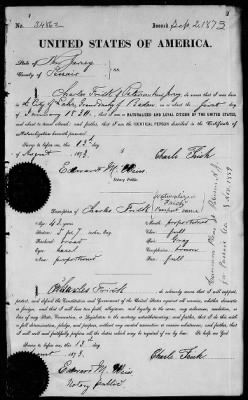 No. 34862 Issued Sep 2 1873
UNITED STATES OF AMERICA.
State of New Jersey
County of Passaic ss.
I, Charles Frick of
do swear that I was born
in the City of Lahr, Grand Duchy of Baden on the first day of
January 1830, that I am a NATURALIZED AND LOYAL CITIZEN OF THE UNITED STATES,
and about to travel abroad; and further, that I am the IDENTICAL PERSON described in the Certificate of
Naturalization herewith presented.
Sworn to before me, this 13th day
of August 1873. Charles Frick
Edward M. Weiss
Notary Public.
Description of Charles Frick
Age: 43 years
Stature: 5 ft 7 inches, Eng.
Forehead:
Eyes:
Nose: proportioned
Mouth: proportioned
Chin: full
Hair: gray
Complexion: brown
Face: full
I, Charles Frick, do solemnly swear that I will support,
protect, and defend the Constitution and Government of the United States against all enemies, whether domestic
or foreign; and that I will bear true faith, allegiance, and loyalty to the same, any ordinance, resolution, or
law of any State, Convention, or Legislature to the contrary notwithstanding; and further, that I do this with
a full determination, pledge, and purpose, without any mental reservation or evasion whatsoever; and further, that
I will well and faithfully perform all the duties which may be required of me by law. So help me God
Sworn to before me, this 13th day
of August 1873. Charles Frick
Edward M. Weiss
Notary public